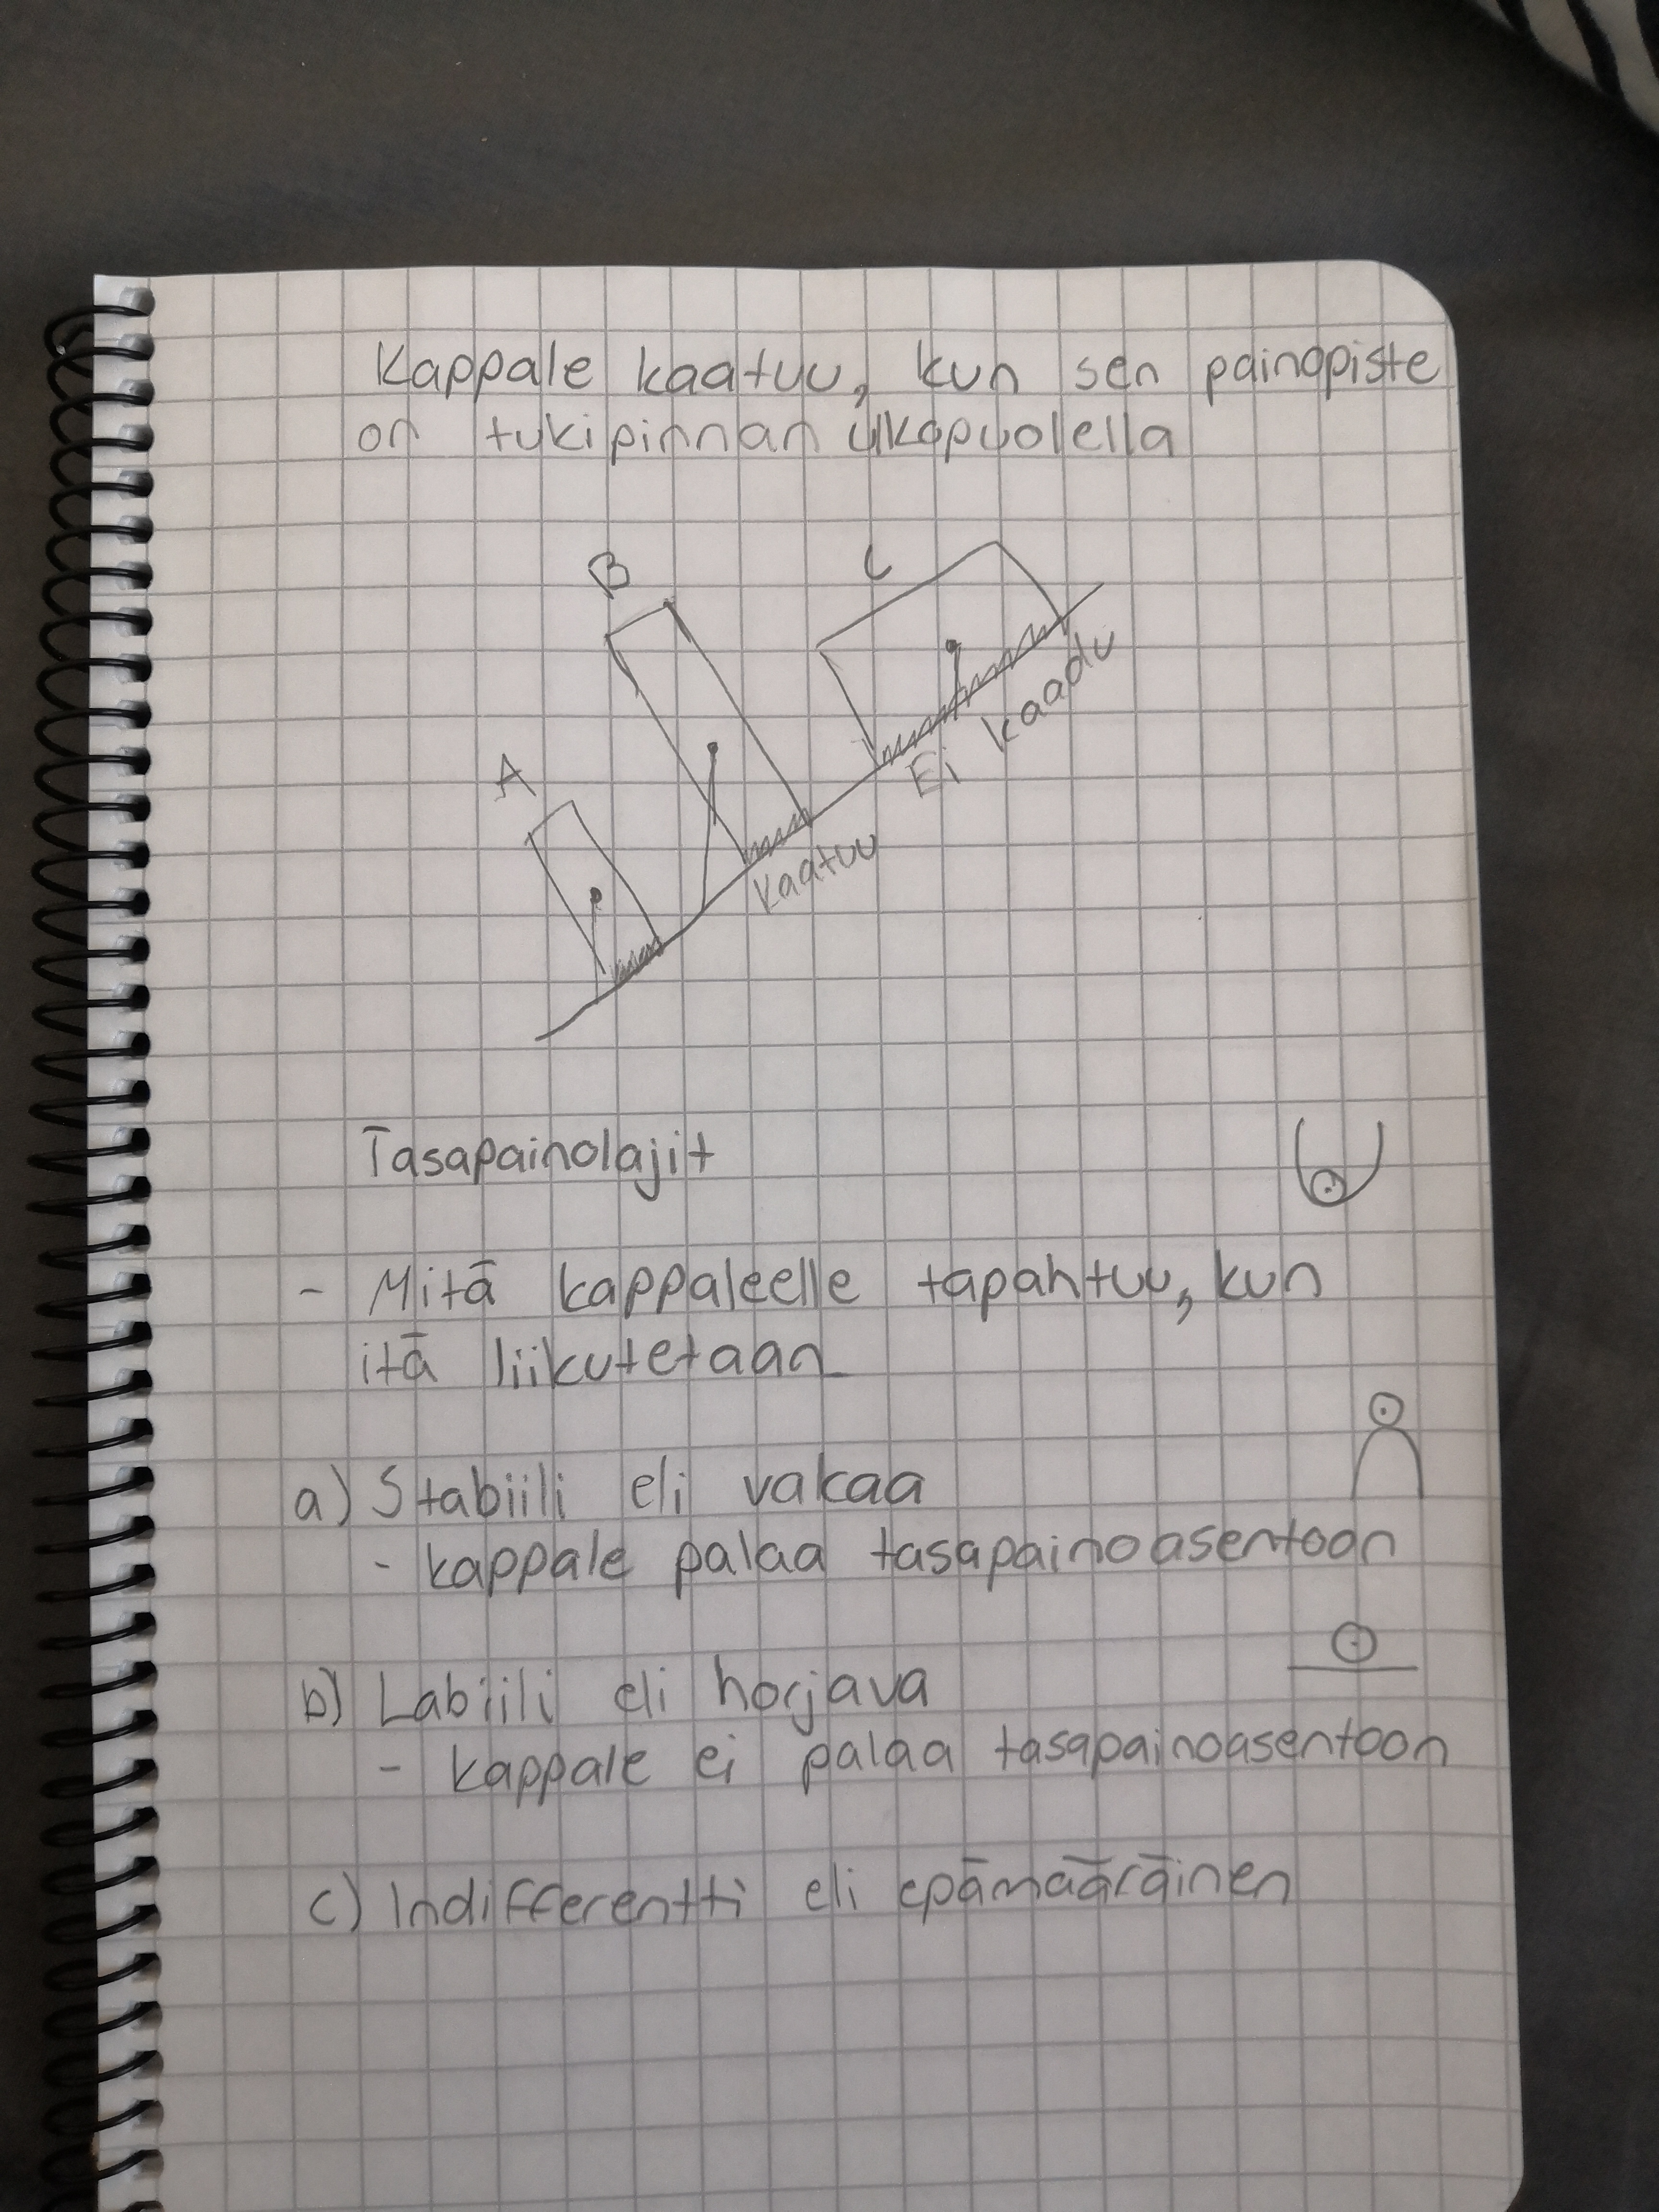 Kappale kaatuu, kun sen painopiste
on tukipinnan ulkopuolella
B
C
A
Ei kaadu
Kaatuu
Tasapainolajit
- Mitä kappaleelle tapahtuu, kun
itä liikutetaan
a) Stabiili eli vakaa
- kappale palaa tasapainoasentoon
b) Labiili eli horjava
- kappale ei palaa tasapainoasentoon
c) Indifferentti eli epämääräinen